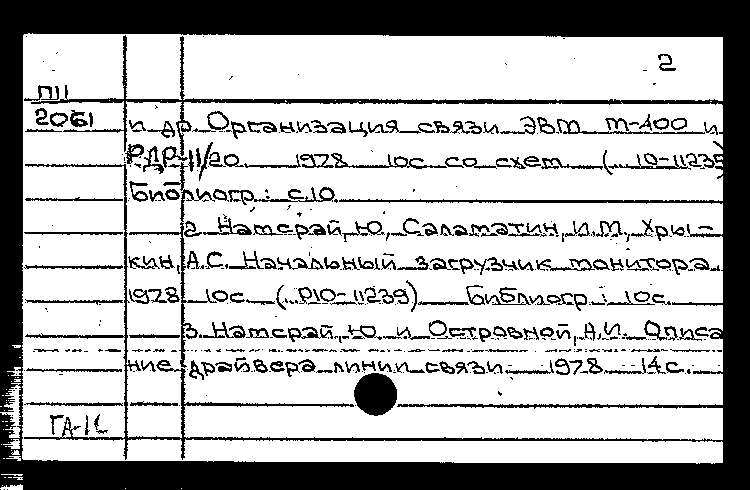 2
П11
2061
и др. Организация связи ЭВМ М-400 и
PDP-11/20. 1978 10с со схем. ( 10-11235)
Библиогр.: с.10
2. Намсрай, Ю., Саламатин, И.М., Хры-
кин, А.С. Начальный загрузчик монитора.
1978 10с. ( Р10-11239) Библиогр.: 10с.
3. Намсрай, Ю. и Островной, А.И. Описа
ние драйвера линии связи. 1978 14с.